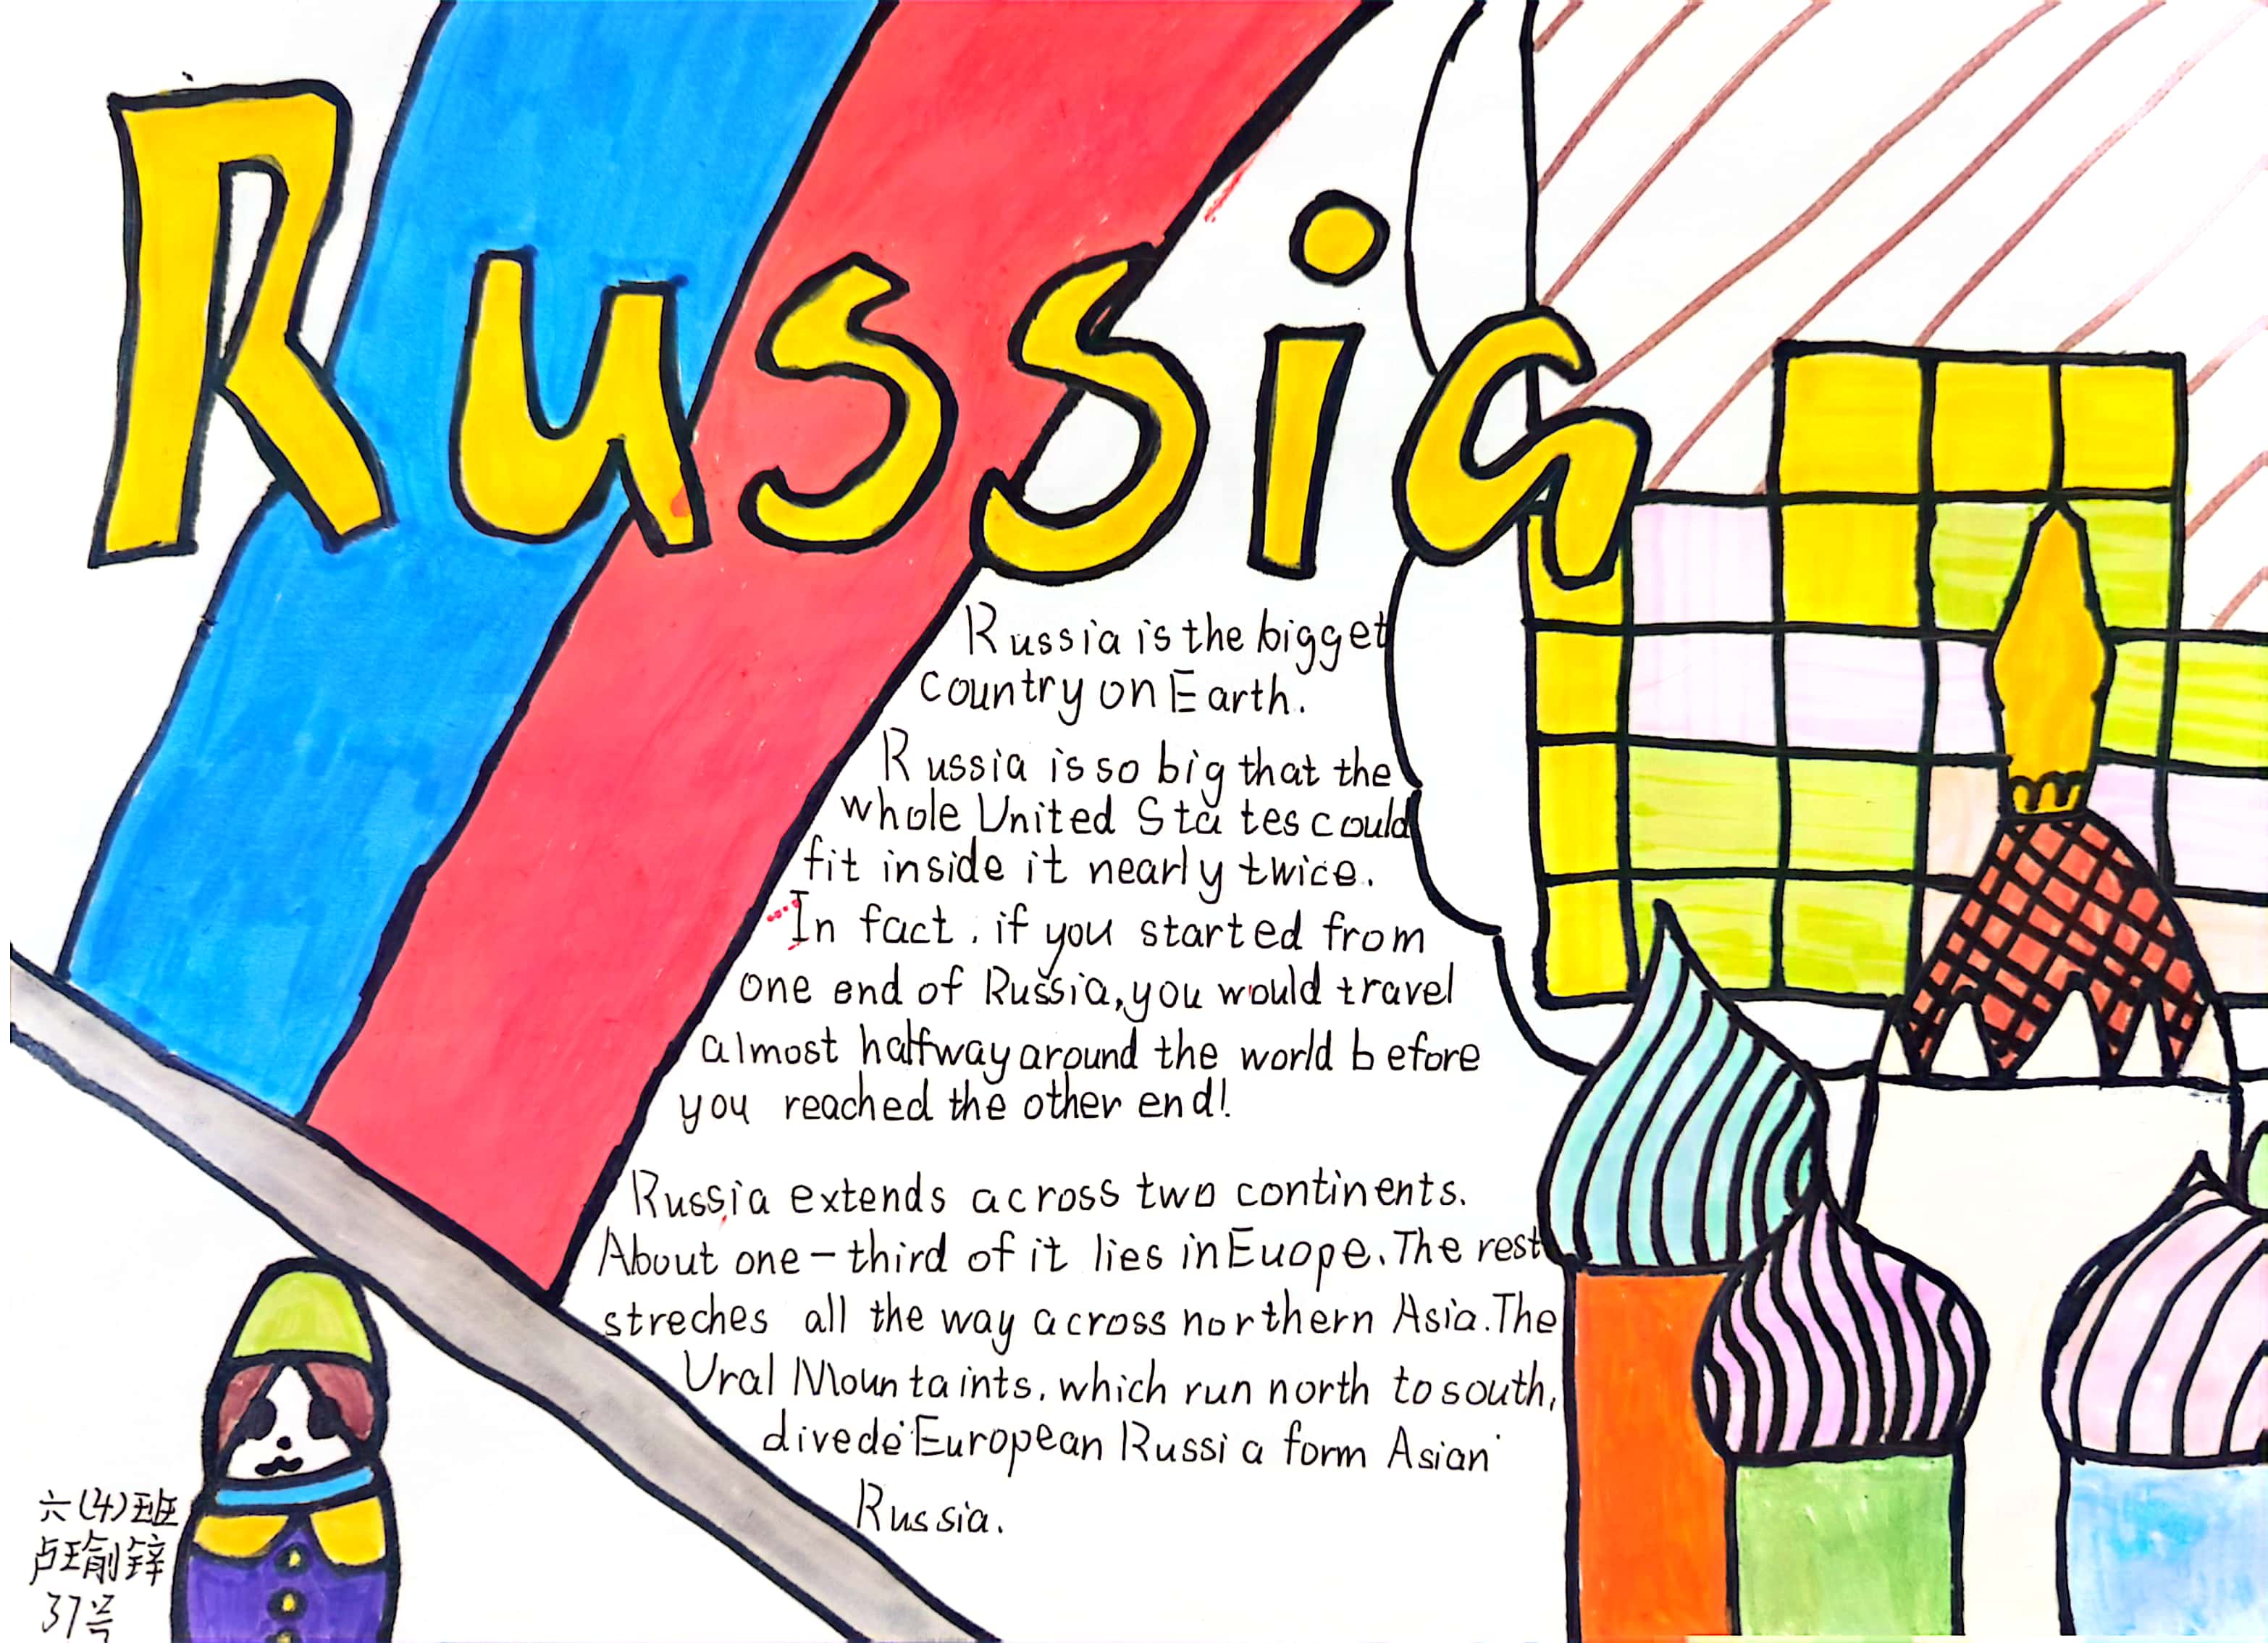 Russia
Russia is the bigget
country on Earth.
Russia is so big that the
whole United States could
fit inside it nearly twice.
In fact, if you started from
one end of Russia, you would travel
almost halfway around the world before
you reached the other end!
Russia extends across two continents.
About one-third of it lies in Euope. The rest
streches all the way across northern Asia. The
Ural Mountaints, which run north to south,
divede European Russia form Asian
Russia.
六(4)班
卢瑜锌
37号